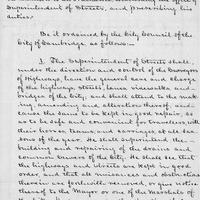 Superintendent of Streets, and prescribing his
duties.
Be it ordained by the City Council of the
City of Cambridge, as follows:—
1. The Superintendent of Streets shall,
under the direction and control of the Surveyors
of Highways, have the general care and charge
of the highways, streets, lanes, sidewalks and
bridges of the City; and shall attend to the mak-
ing, amending and alteration thereof, and
cause the same to be kept in good repair, so
as to be safe and convenient for travellers, with
their horses, teams and carriages, at all sea-
sons of the year. He shall superintend the
building and repairing of the drains and
common sewers of the City. He shall see that
the highways and streets are kept in good
order, and that all nuisances and obstructions
therein are forthwith removed, or give notice
thereof to the Mayor or one of the Marshals of